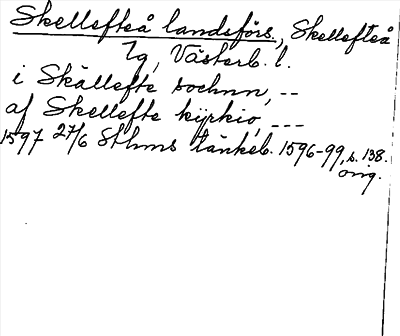 Skellefteå landsförs., Skellefteå
lg, Västerb. l.
i Skällefte sochnn, --
af Skellefte kyrkio, ---
1597 27/6 Sthms tänkeb. 1596-99, s. 138.
orig.